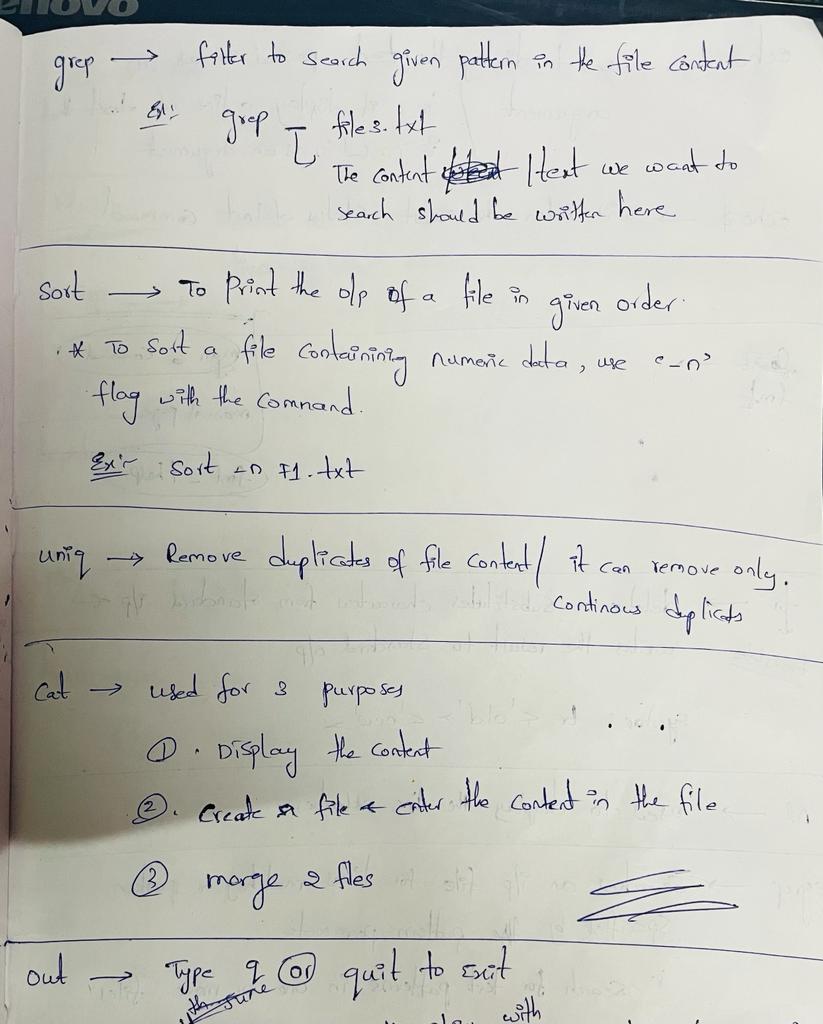 enovo
grep → filter to search given pattern in the file content
Ex:- grep _ file3.txt
The content /text we want to
search should be written here
Sort → To Print the o/p of a file in given order.
* To Sort a file Containining numeric data, use '-n'
flag with the Command.
Ex:- Sort -n F1.txt
uniq → Remove duplicates of file Content/ it can remove only.
Continous duplicats
Cat → used for 3 purposes
① . Display the Content
②. Create a file & enter the Content in the file
③ merge 2 files
out → Type q (or) quit to Exit
June
with